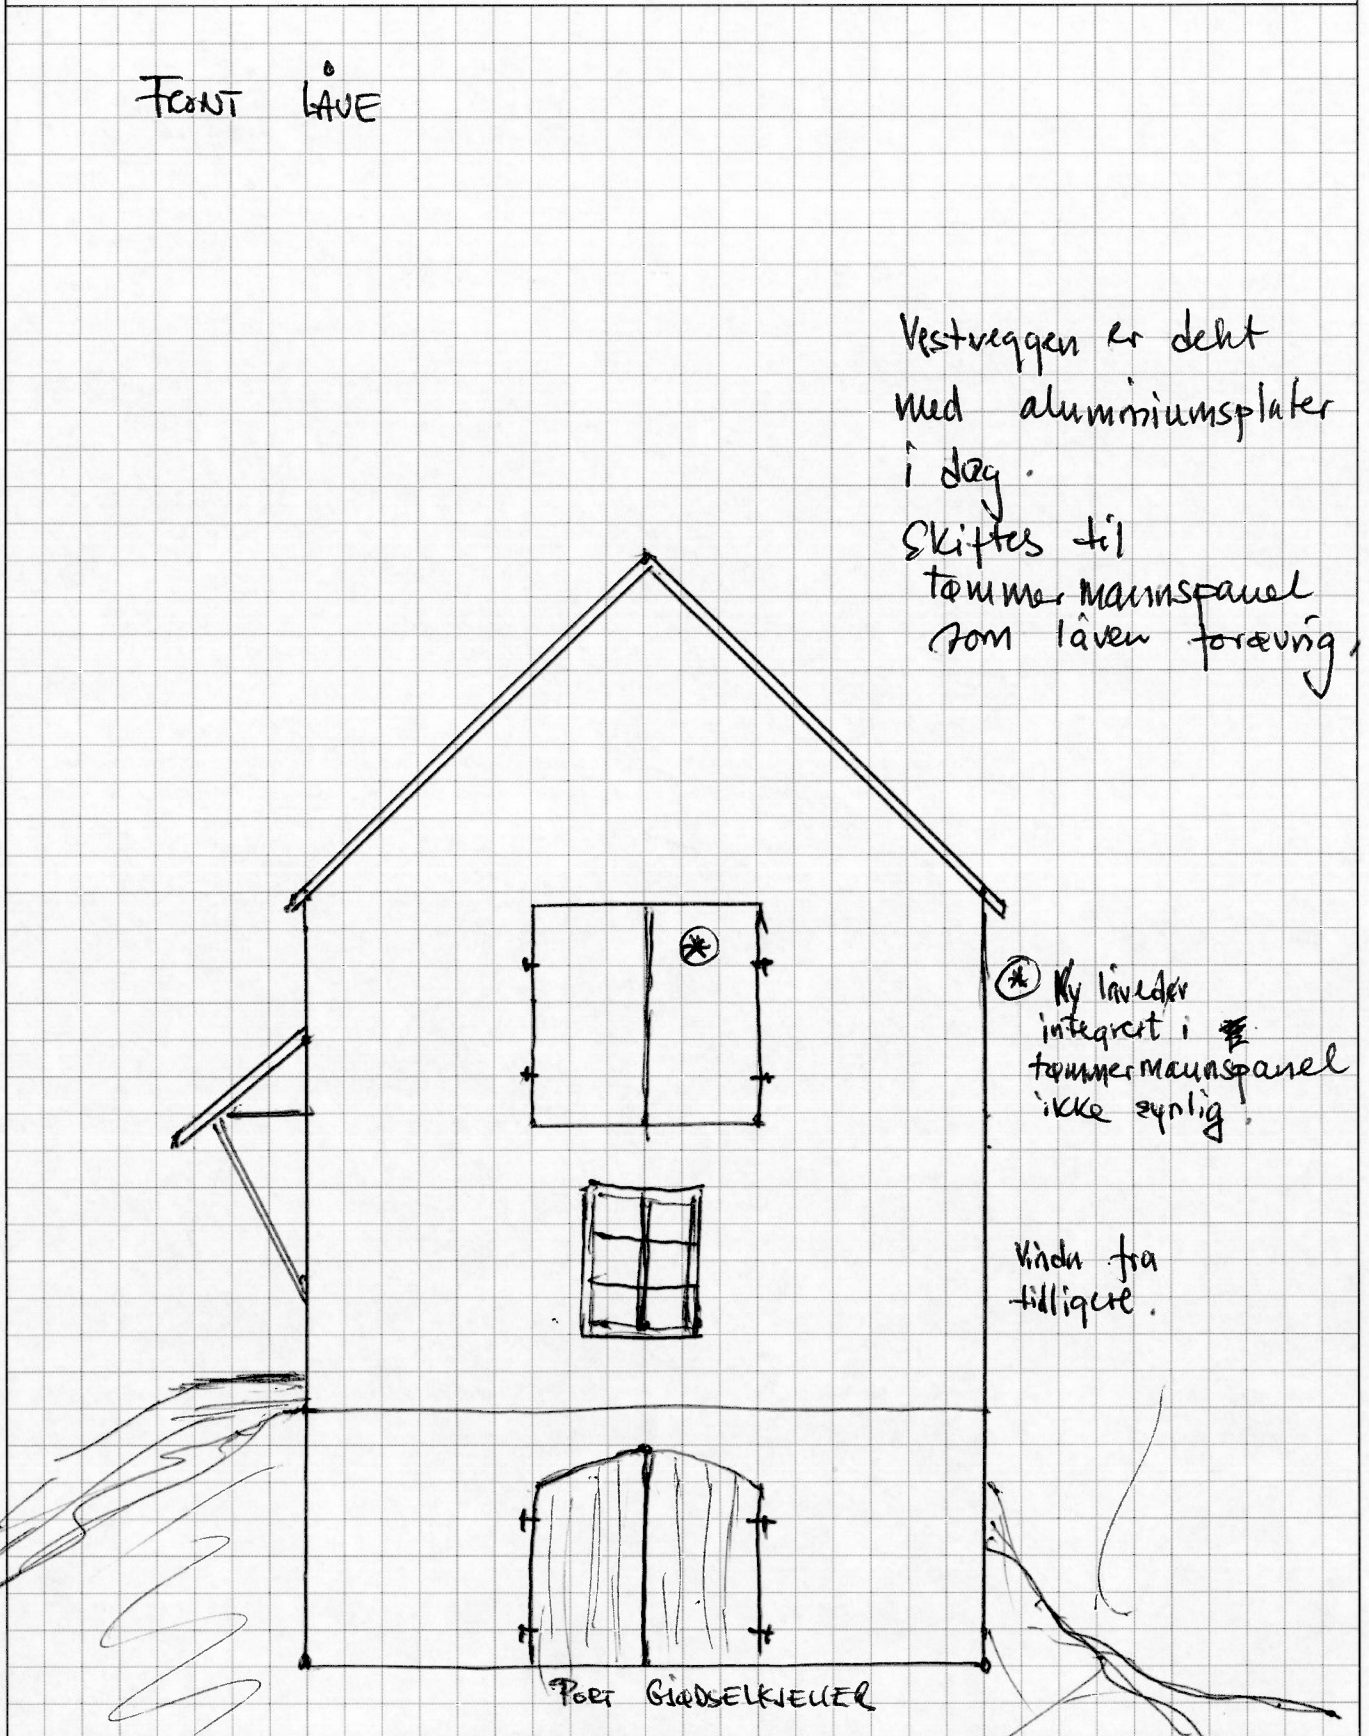 FRONT LÅVE
Vestveggen er dekt
med aluminiumsplater
i dag.
Skiftes til
tømmermannspanel
som låven forøvrig.
Ny låvedør
integrert i
tømmermannspanel
ikke synlig.
Vindu fra
tidligere.
PORT GJØDSELKJELLER